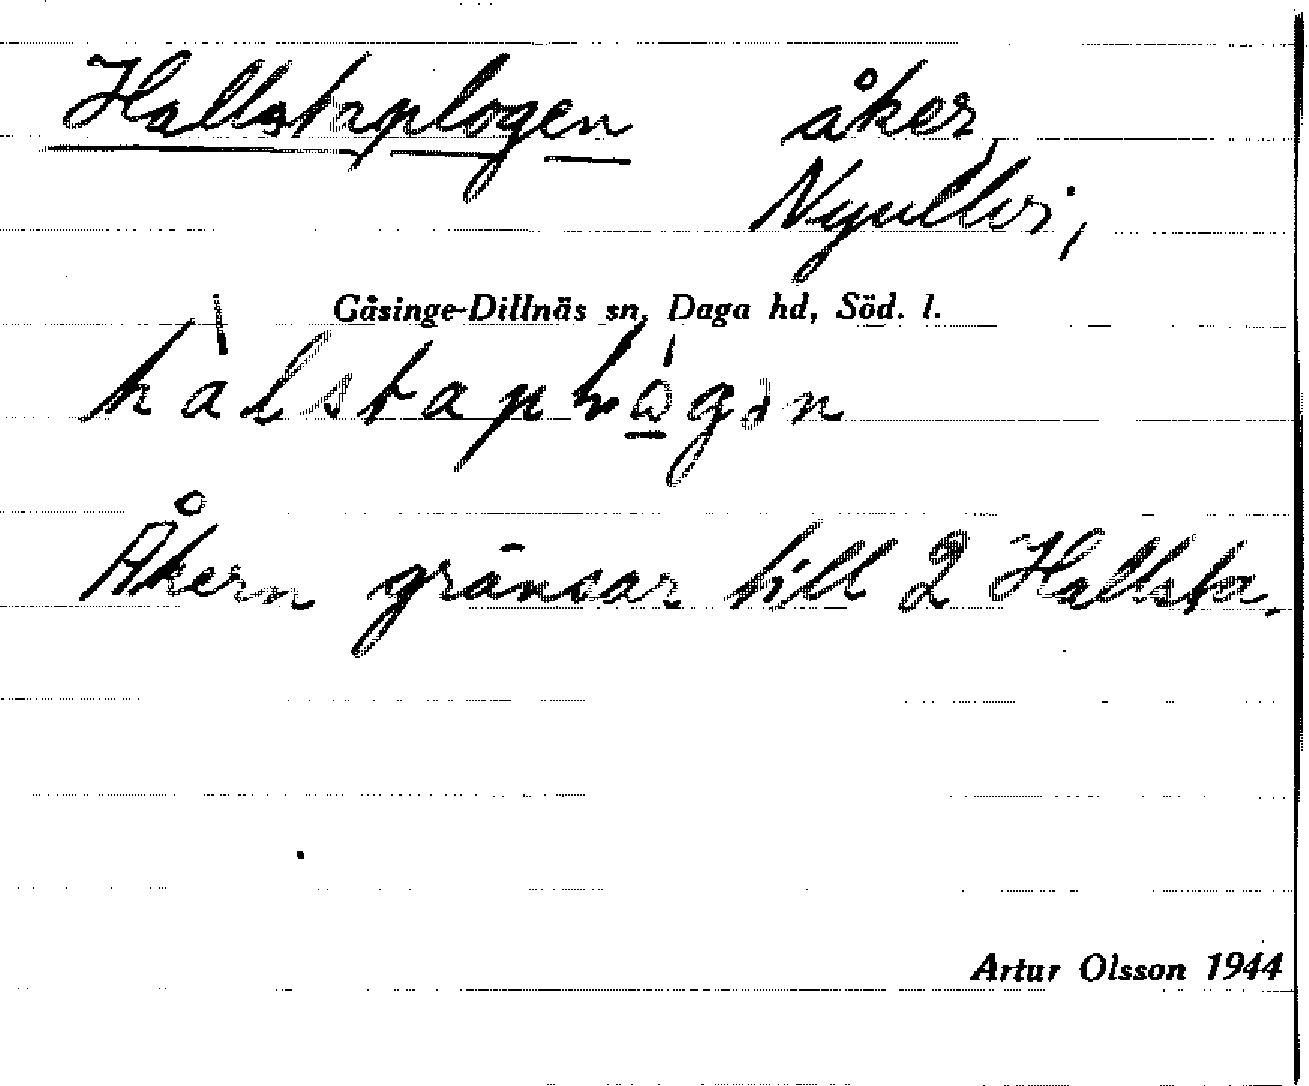 Hallstaplogen åker,
Nyullvi,
Gåsinge-Dillnäs sn, Daga hd, Söd. l.
Åkern gränsar till 2 Hallsta.
Artur Olsson 1944